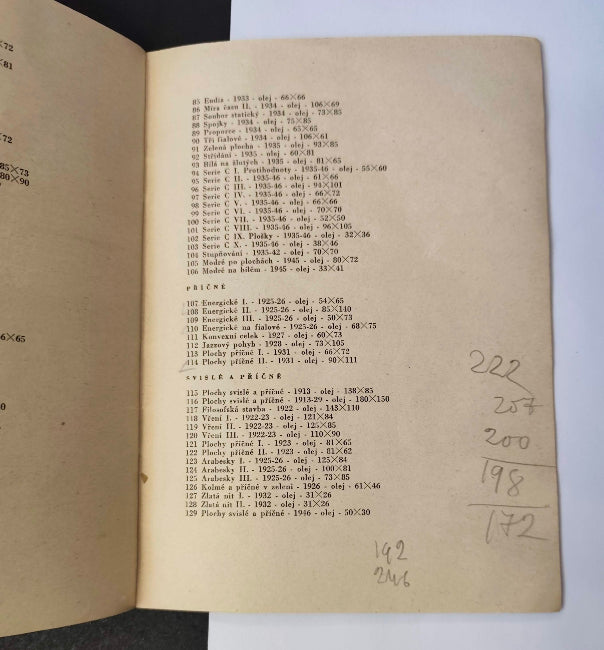 72
81
72
85×73
80×90
6×65
0
85 Endia - 1933 - olej - 66×66
86 Míra času II. - 1934 - olej - 106×69
87 Soubor statický - 1934 - olej - 73×85
88 Spojky - 1934 - olej - 75×85
89 Proporce - 1934 - olej - 65×65
90 Tři fialové - 1934 - olej - 106×61
91 Zelená plocha - 1935 - olej - 93×85
92 Střídání - 1935 - olej - 60×81
93 Bílá na žlutých - 1935 - olej - 81×65
94 Serie C I. Protihodnoty - 1935-46 - olej - 55×60
95 Serie C II. - 1935-46 - olej - 61×66
96 Serie C III. - 1935-46 - olej - 94×101
97 Serie C IV. - 1935-46 - olej - 66×72
98 Serie C V. - 1935-46 - olej - 66×66
99 Serie C VI. - 1935-46 - olej - 70×70
100 Serie C VII. - 1935-46 - olej - 52×50
101 Serie C VIII. - 1935-46 - olej - 96×105
102 Serie C IX. Plošky - 1935-46 - olej - 32×36
103 Serie C X. - 1935-46 - olej - 38×46
104 Stupňování - 1935-42 - olej - 70×70
105 Modré po plochách - 1945 - olej - 80×72
106 Modré na bílém - 1945 - olej - 33×41
PŘÍČNÉ
107 Energické I. - 1925-26 - olej - 54×65
108 Energické II. - 1925-26 - olej - 85×140
109 Energické III. - 1925-26 - olej - 50×73
110 Energické na fialové - 1925-26 - olej - 68×75
111 Konvexní celek - 1927 - olej - 60×73
112 Jazzový pohyb - 1928 - olej - 73×105
113 Plochy příčné I. - 1931 - olej - 66×72
114 Plochy příčné II. - 1931 - olej - 90×111
SVISLÉ A PŘÍČNÉ
115 Plochy svislé a příčné - 1913 - olej - 138×85
116 Plochy svislé a příčné - 1913-29 - olej - 180×150
117 Filosofská stavba - 1922 - olej - 143×110
118 Vření I. - 1922-23 - olej - 121×84
119 Vření II. - 1922-23 - olej - 125×85
120 Vření III. - 1922-23 - olej - 110×90
121 Plochy příčné I. - 1923 - olej - 81×65
122 Plochy příčné II. - 1923 - olej - 81×62
123 Arabesky I. - 1925-26 - olej - 125×84
124 Arabesky II. - 1925-26 - olej - 100×81
125 Arabesky III. - 1925-26 - olej - 73×85
126 Kolmé a příčné v zeleni - 1926 - olej - 61×46
127 Zlatá nit I. - 1932 - olej - 31×26
128 Zlatá nit II. - 1932 - olej - 31×26
129 Plochy svislé a příčné - 1946 - olej - 50×30
222
207
200
198
172
192
246